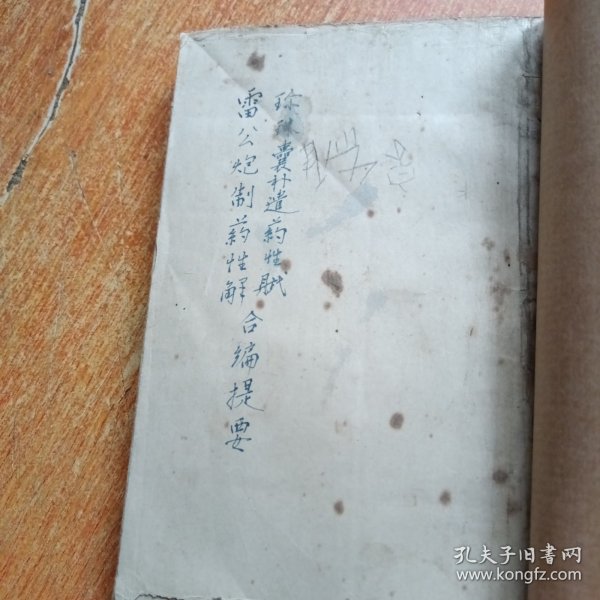 珍珠囊补遗药性赋
雷公炮制药性解
合编提要
孔夫子旧书网
www.kongfz.com